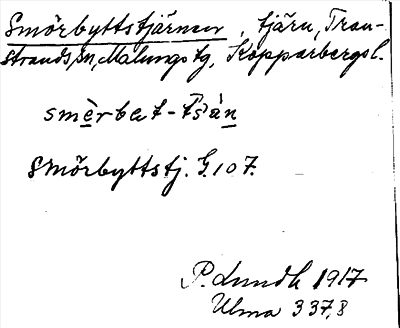 Smörbyttstjärnen, tjärn, Tran-
strands sn, Malungs tg, Kopparbergs l.
smèrbat-
Smörbyttstj. G. 107.
P. Lundh 1917
Ulma 337,8